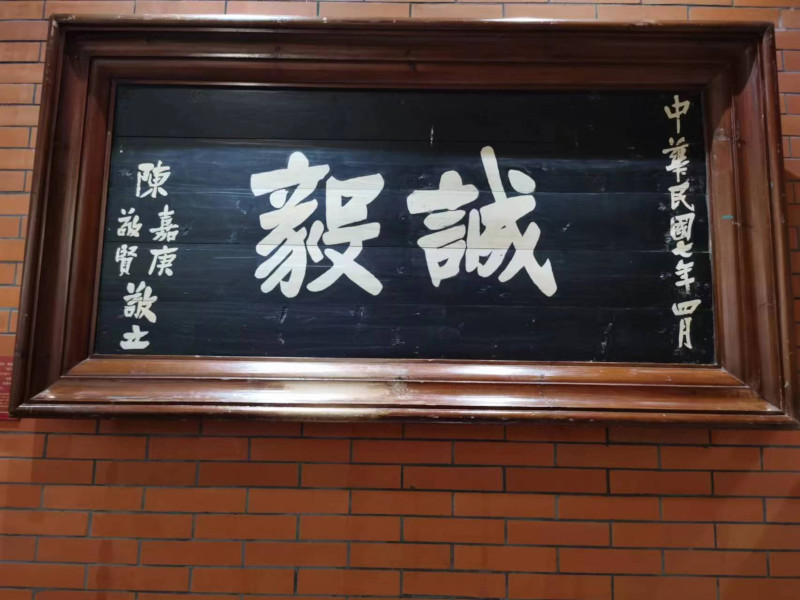 中華民國七年四月
誠毅
陳嘉庚
敬賢
敬立